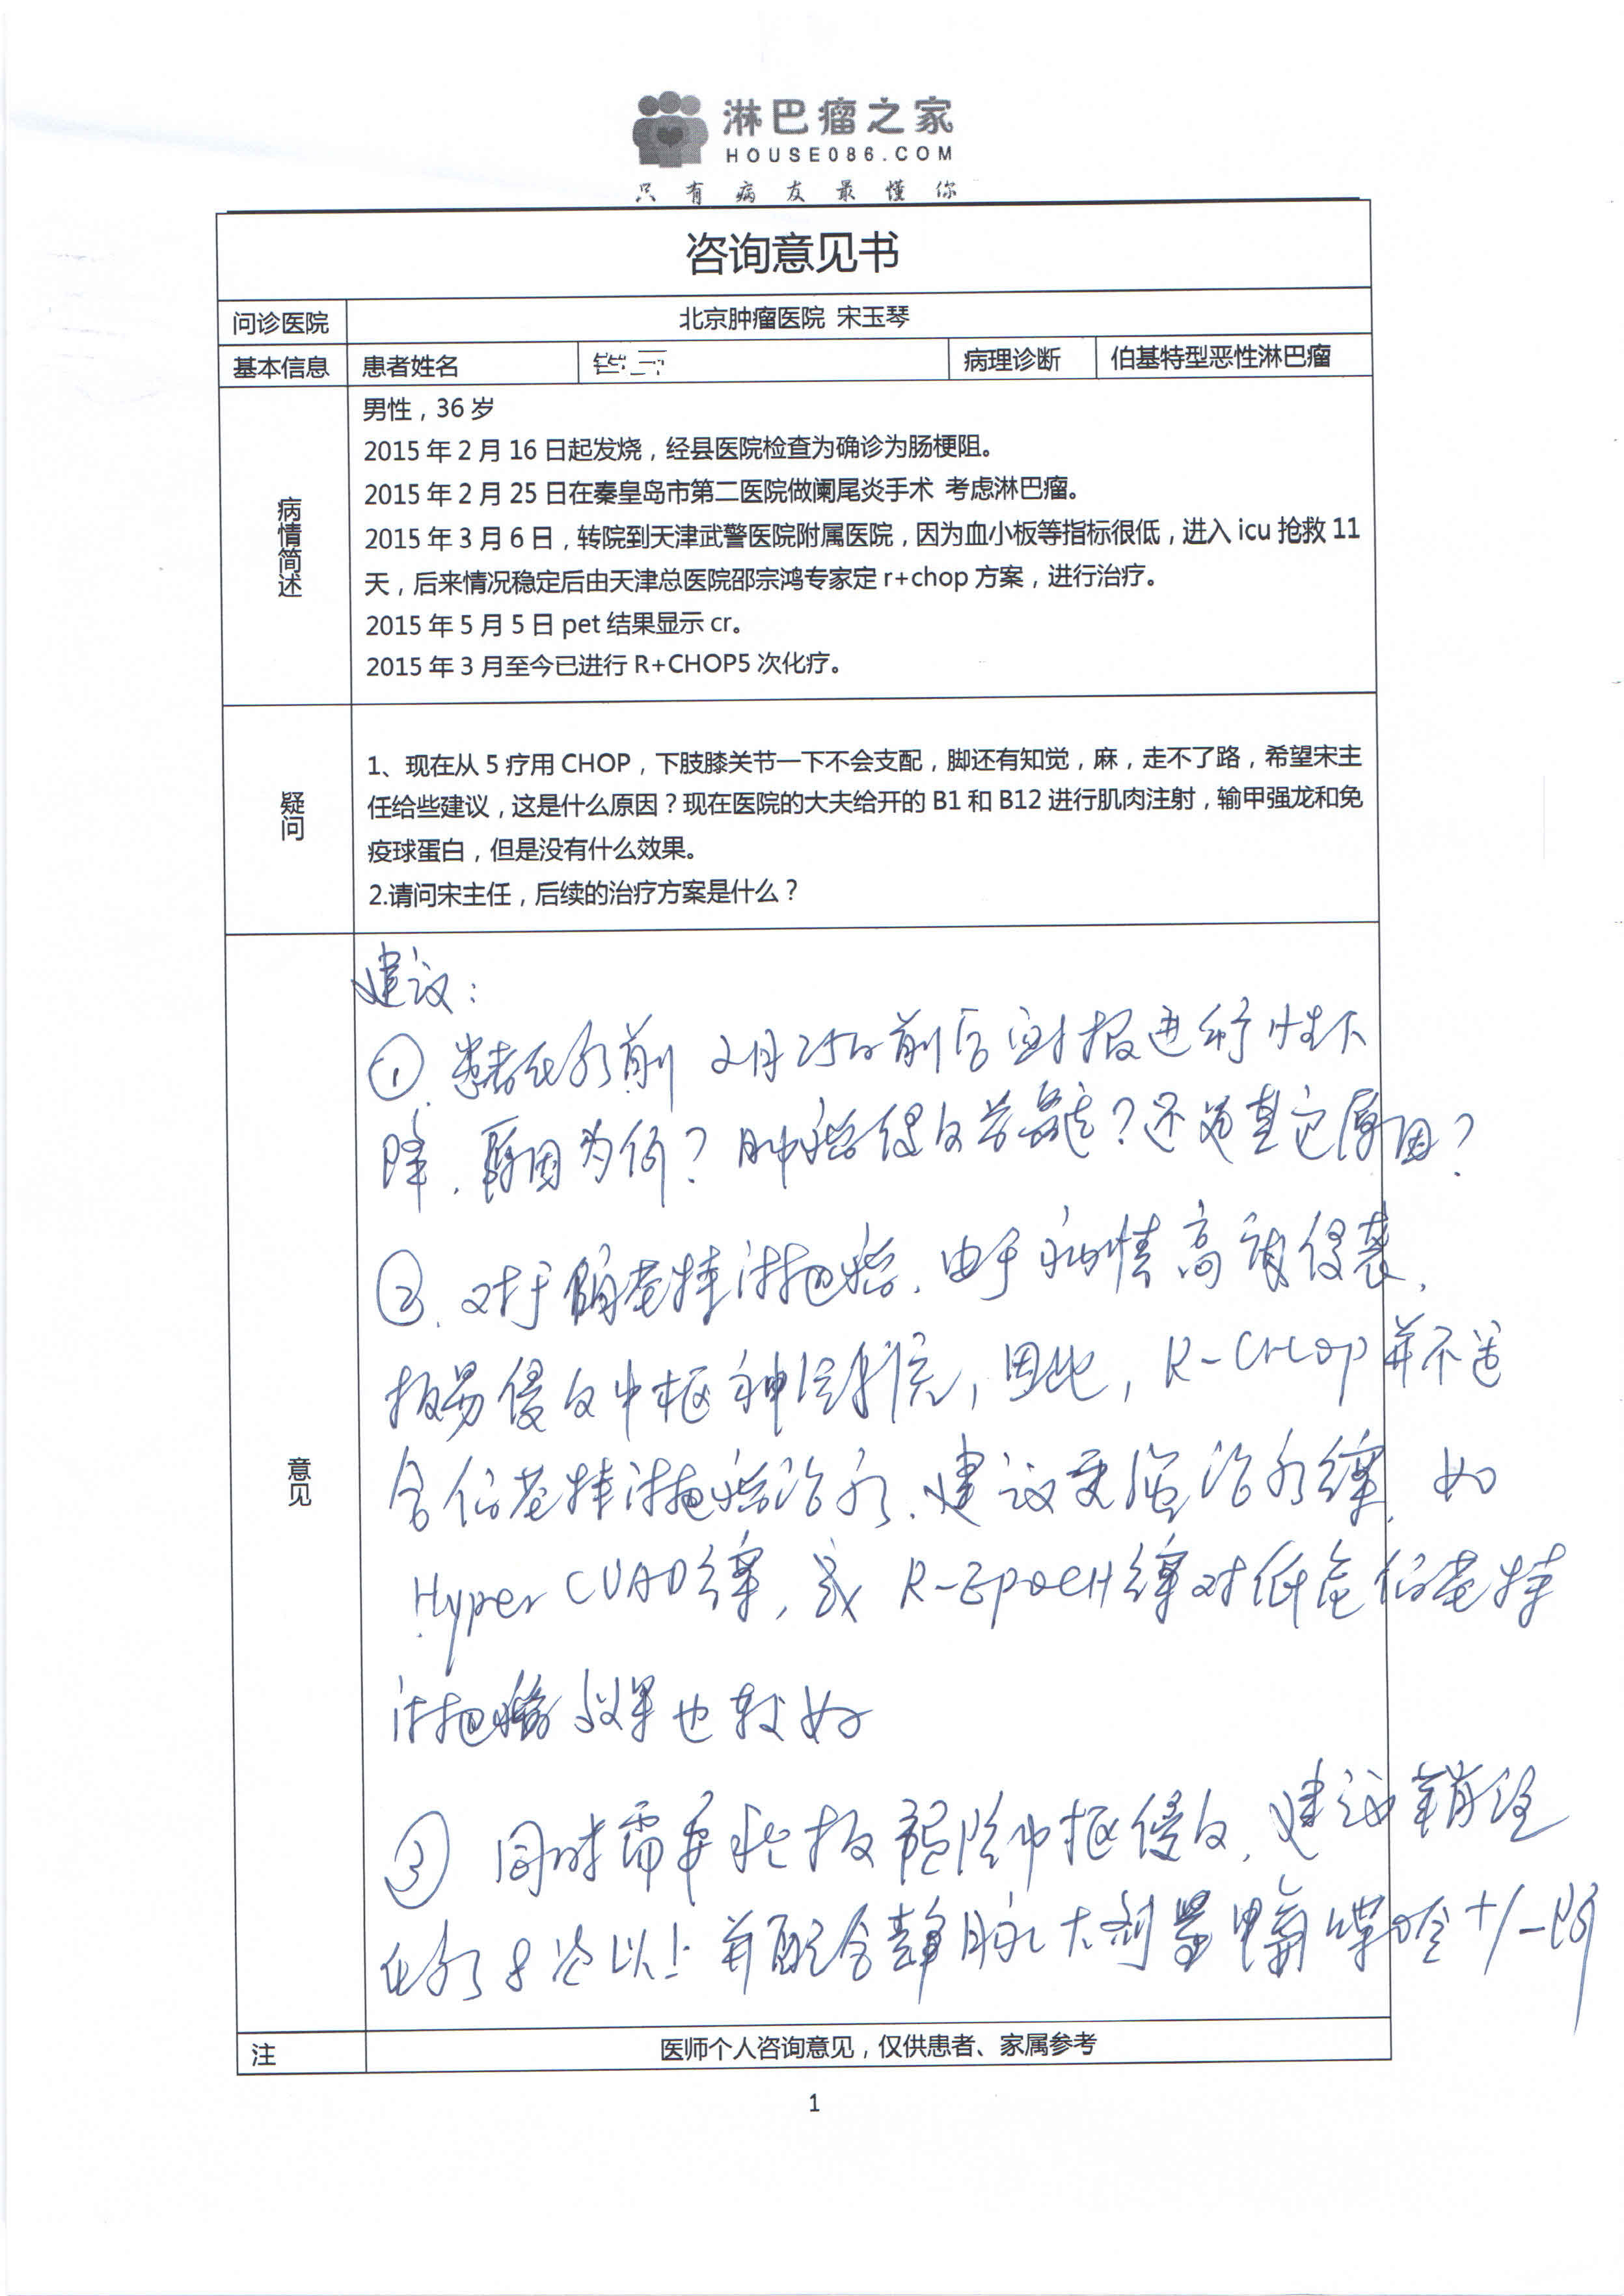 淋巴瘤之家
HOUSE086.COM
只有病友最懂你
咨询意见书
问诊医院 北京肿瘤医院 宋玉琴
基本信息 患者姓名 病理诊断 伯基特型恶性淋巴瘤
病情简述
男性，36 岁
2015 年 2 月 16 日起发烧，经县医院检查为确诊为肠梗阻。
2015 年 2 月 25 日在秦皇岛市第二医院做阑尾炎手术 考虑淋巴瘤。
2015 年 3 月 6 日，转院到天津武警医院附属医院，因为血小板等指标很低，进入 icu 抢救 11
天，后来情况稳定后由天津总医院邵宗鸿专家定 r+chop 方案，进行治疗。
2015 年 5 月 5 日 pet 结果显示 cr。
2015 年 3 月至今已进行 R+CHOP5 次化疗。
疑问
1、现在从 5 疗用 CHOP，下肢膝关节一下不会支配，脚还有知觉，麻，走不了路，希望宋主
任给些建议，这是什么原因？现在医院的大夫给开的 B1 和 B12 进行肌肉注射，输甲强龙和免
疫球蛋白，但是没有什么效果。
2.请问宋主任，后续的治疗方案是什么？
意见
建议：
① 患者化疗前 2月25日前后血报进行性下
降，原因为何？肿瘤侵及骨髓？还是其它原因？
②. 对于伯基特淋巴瘤，由于病情高度侵袭，
极易侵及中枢神经系统，因此，R-CHOP 并不适
合伯基特淋巴瘤治疗，建议更强治疗方案，如
Hyper CVAD方案，或 R-EPOCH方案对低危伯基特
淋巴瘤效果也较好
③ 同时需要积极预防中枢侵及，建议鞘注
化疗8次以上并配合静脉大剂量甲氨喋呤+/-阿
注 医师个人咨询意见，仅供患者、家属参考
1